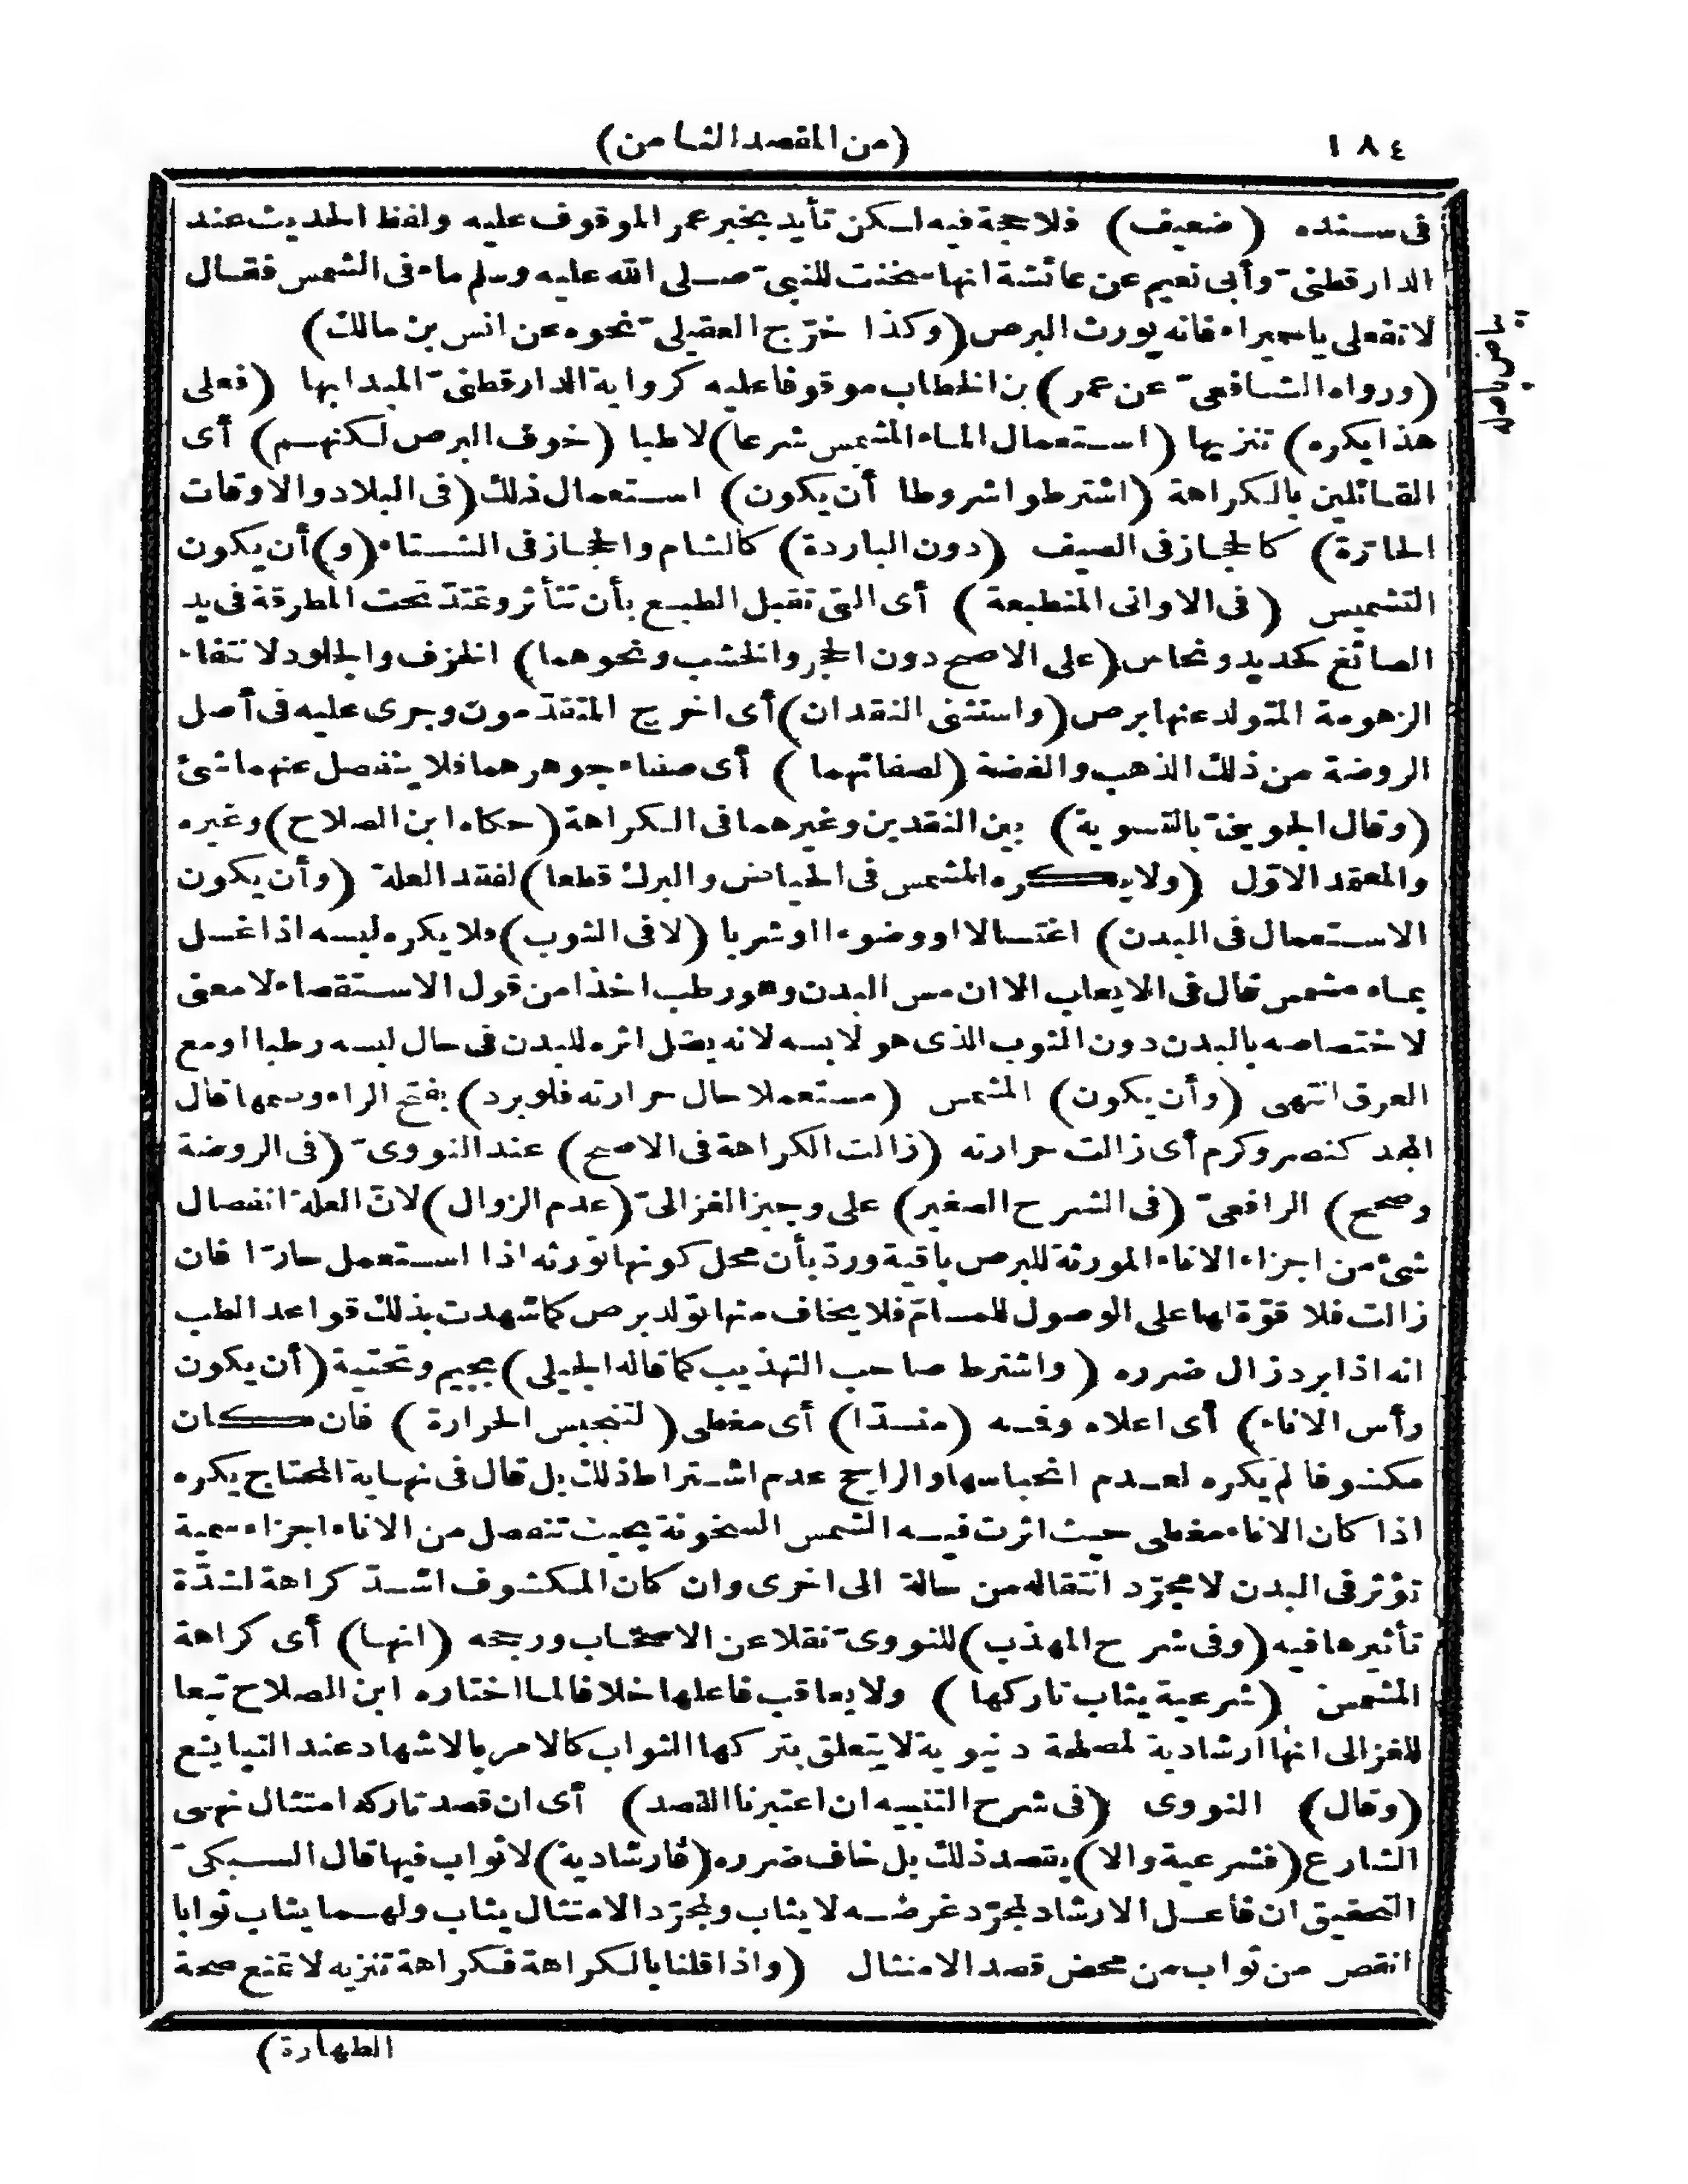 ١٨٤
(من المقصد الثامن)
فى سنده (ضعيف) فلا حجة فيه لكن تأيد بخبر عمر الموقوف عليه ولفظ الحديث عند
الدارقطنىّ وأبى نعيم عن عائشة انها سخنت للنبىّ صلى الله عليه وسلم ماء فى الشمس فقال
لا تفعلى ياحميراء فانه يورث البرص (وكذا خرّج العقيلىّ نحوه عن انس بن مالك)
(ورواه الشافعىّ عن عمر) بن الخطاب موقوفا عليه كرواية الدارقطنىّ المبدا بها (فعلى
هذا يكره) تنزيها (استعمال الماء المشمس شرعا) لا طبا (خوف البرص لكنهم) أى
القائلين بالكراهة (اشترطوا شروطا أن يكون) استعمال ذلك (فى البلاد والاوقات
الحارّة) كالحجاز فى الصيف (دون الباردة) كالشام والحجاز فى الشتاء (و) أن يكون
التشميس (فى الاوانى المنطبعة) أى التى تقبل الطبع بأن تتأثر وتمتدّ تحت المطرقة فى يد
الصائغ كحديد ونحاس (على الاصح دون الحجر والخشب ونحوهما) الخزف والجلود لانتفاء
الزهومة المتولد عنها برص (واستثنى النقدان) أى اخرج المتقدّمون وجرى عليه فى أصل
الروضة من ذلك الذهب والفضة (لصفائهما) أى صفاء جوهرهما فلا ينفصل عنهما شئ
(وقال الجوينىّ بالتسوية) بين النقدين وغيرهما فى الكراهة (حكاه ابن الصلاح) وغيره
والمعتمد الاوّل (ولا يكره المشمس فى الحياض والبرك قطعا) لفقد العلة (وأن يكون
الاستعمال فى البدن) اغتسالا او وضوءا او شربا (لا فى الثوب) فلا يكره لبسه اذا غسل
بماء مشمس قال فى الايعاب الا ان مس البدن وهو رطب اخذا من قول الاستقصاء لا معنى
لاختصاصه بالبدن دون الثوب الذى هو لابسه لانه يصل اثره للبدن فى حال لبسه رطبا او مع
العرق انتهى (وأن يكون) المشمس (مستعملا حال حرارته فلو برد) بفتح الراء وضمها قال
المجد كنصر وكرم أى زالت حرارته (زالت الكراهة فى الاصح) عند النووىّ (فى الروضة
وصحح) الرافعىّ (فى الشرح الصغير) على وجيز الغزالىّ (عدم الزوال) لانّ العلة انفصال
شئ من اجزاء الاناء المورثة للبرص باقية وردّ بأن محل كونها تورثه اذا استعمل حارّا فان
زالت فلا قوّة لها على الوصول للمسامّ فلا يخاف منها تولد برص كما شهدت بذلك قواعد الطب
انه اذا برد زال ضرره (واشترط صاحب التهذيب كما قاله الجيلى) بجيم وتحتية (أن يكون
رأس الاناء) أى اعلاه وفمه (منسدّا) أى مغطى (لتنحبس الحرارة) فان كان
مكشوفا لم يكره لعدم انحباسها والراجح عدم اشتراط ذلك بل قال فى نهاية المحتاج يكره
اذا كان الاناء مغطى حيث اثرت فيه الشمس السخونة بحيث تنفصل من الاناء اجزاء سمية
تؤثر فى البدن لا مجرّد انتقاله من حالة الى اخرى وان كان المكشوف اشدّ كراهة لشدّة
تأثيرها فيه (وفى شرح المهذب) للنووىّ نقلا عن الاصحاب ورجحه (انها) أى كراهة
المشمس (شرعية يثاب تاركها) ولا يعاقب فاعلها خلافا لما اختاره ابن الصلاح تبعا
للغزالى انها ارشادية لمصلحة دنيوية لا يتعلق بتركها الثواب كالامر بالاشهاد عند التبايع
(وقال) النووى (فى شرح التنبيه ان اعتبرنا القصد) أى ان قصد تاركه امتثال نهى
الشارع (فشرعية والا) يقصد ذلك بل خاف ضرره (فارشادية) لا ثواب فيها قال السبكىّ
التحقيق ان فاعل الارشاد لمجرّد غرضه لا يثاب ولمجرّد الامتثال يثاب ولهما يثاب ثوابا
انقص من ثواب من محض قصد الامتثال (واذا قلنا بالكراهة فكراهة تنزيه لا تمنع صحة
الطهارة)